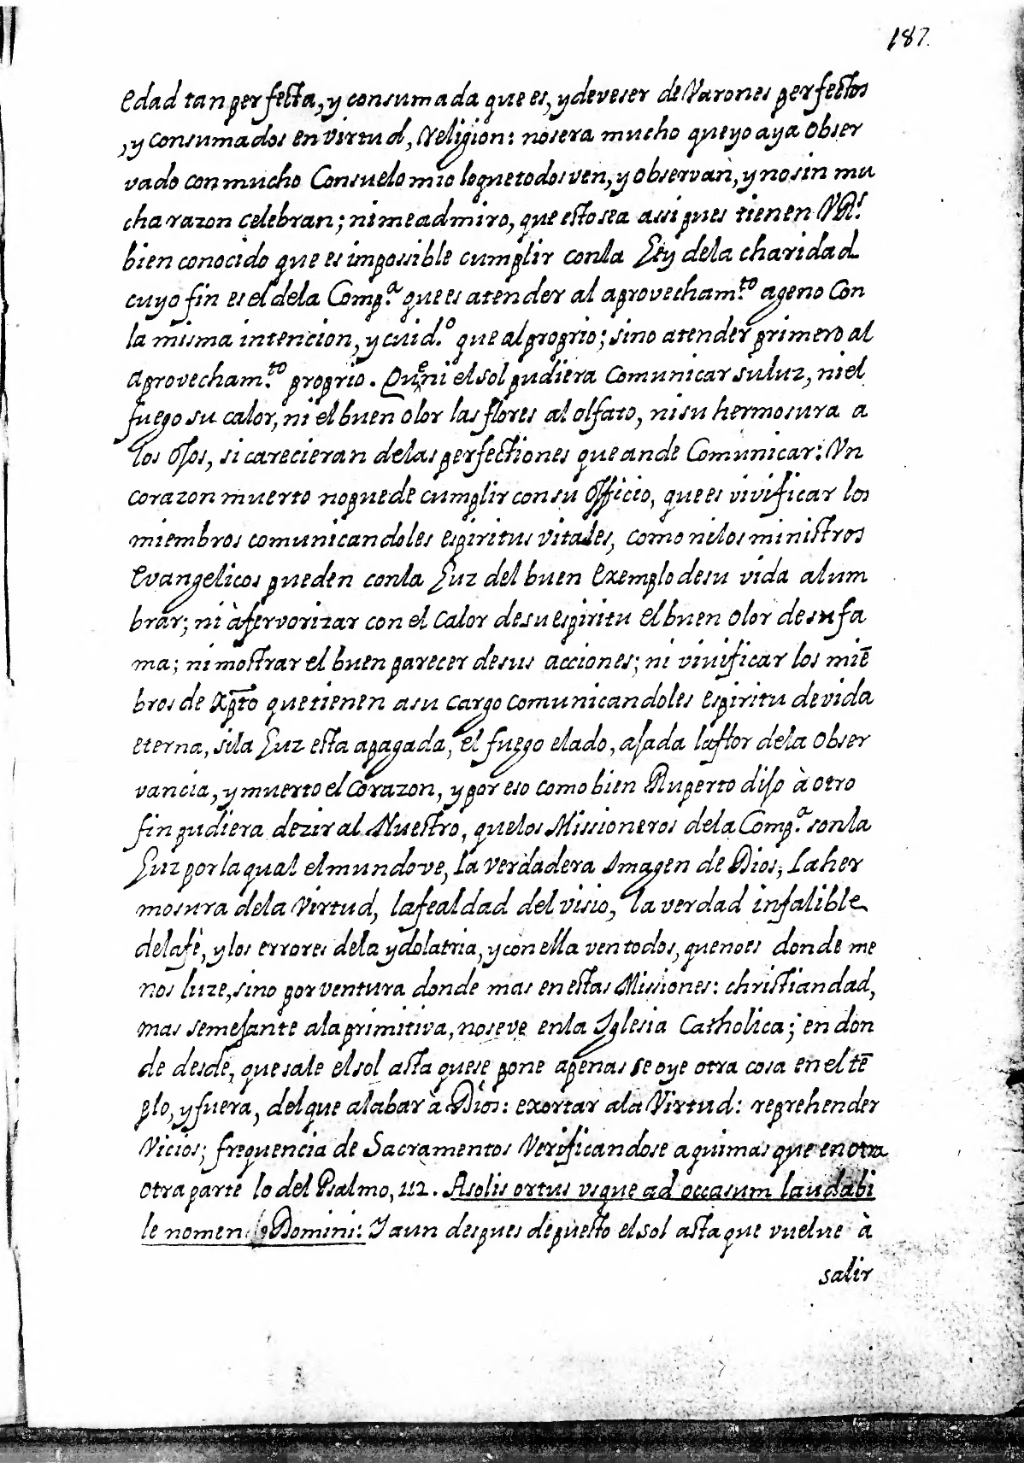 187.
edad tan perfecta, y consumada que es, y deve ser de Varones perfectos
, y consumados en virtud, Religion: no sera mucho que yo aya obser
vado con mucho Consuelo mio lo que todos ven, y observan, y no sin mu
cha razon celebran; ni me admiro, que esto sea assi pues tienen VRs.
bien conocido que es impossible cumplir con la Ley de la charidad
cuyo fin es el de la Comp.a que es atender al aprovecham.to ageno con
la misma intencion, y cuid.o que al proprio; sino atender primero al
aprovecham.to proprio. Que ni el sol pudiera comunicar su luz, ni el
fuego su calor, ni el buen olor las flores al olfato, ni su hermosura a
los ojos, si carecieran de las perfectiones que an de Comunicar: Un
corazon muerto no puede cumplir con su officio, que es vivificar los
miembros comunicandoles espiritus vitales, como ni los ministros
Evangelicos pueden con la Luz del buen exemplo de su vida alum
brar; ni àfervorizar con el calor de su espiritu el buen olor de su fa
ma; ni mostrar el buen parecer de sus acciones; ni vivificar los miẽ
bros de Xpto que tienen a su cargo comunicandoles espiritu de vida
eterna, si la Luz esta apagada, el fuego elado, ajada la flor de la obser
vancia, y muerto el corazon, y por eso como bien Ruperto dijo à otro
fin pudiera dezir al Nuestro, que los Missioneros de la Comp.a son la
Luz por la qual el mundo ve, la verdadera Imagen de Dios; la her
mosura de la Virtud, la fealdad del visio, la verdad infalible
de la fè, y los errores de la ydolatria, y con ella ven todos, que no es donde me
nos luze, sino por ventura donde mas en estas Missiones: christiandad,
mas semejante a la primitiva, no se ve en la Iglesia Catholica; en don
de desde, que sale el sol asta que se pone apenas se oye otra cosa en el tẽ
plo, y fuera, del que alabar à Dios: exortar a la Virtud: reprehender
Vicios; frequencia de Sacramentos Verificandose aqui mas que en otra
otra parte lo del Psalmo, 112. A solis ortus usque ad occasum laudabi
le nomen Domini: I aun despues de puesto el sol asta que vuelve à
salir